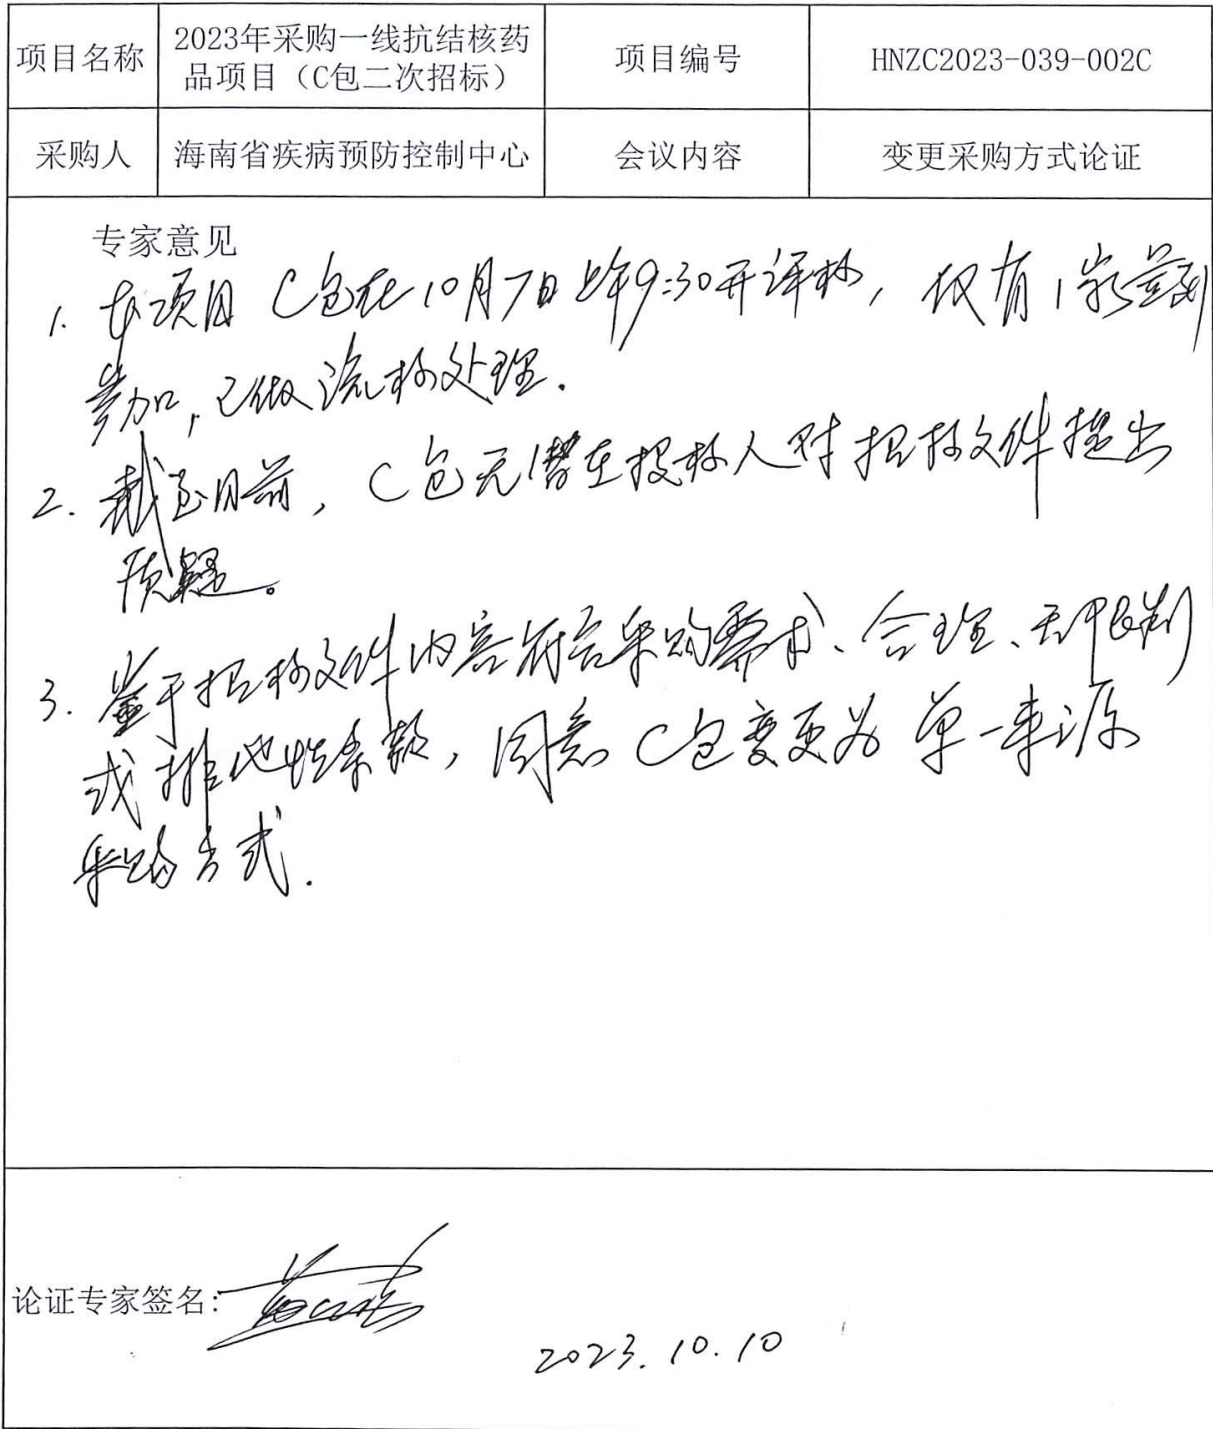 项目名称
2023年采购一线抗结核药
品项目（C包二次招标）
项目编号
HNZC2023-039-002C
采购人
海南省疾病预防控制中心
会议内容
变更采购方式论证
专家意见
1. 本项目C包在10月7日上午9:30开评标，仅有1家
参加，已做流标处理.
2. 截至目前，C包无潜在投标人对招标文件提出
质疑。
3. 鉴于招标文件内容符合采购需求、合理、无限制
或排他性条款，同意C包变更为单一来源
采购方式.
论证专家签名:
2023.10.10